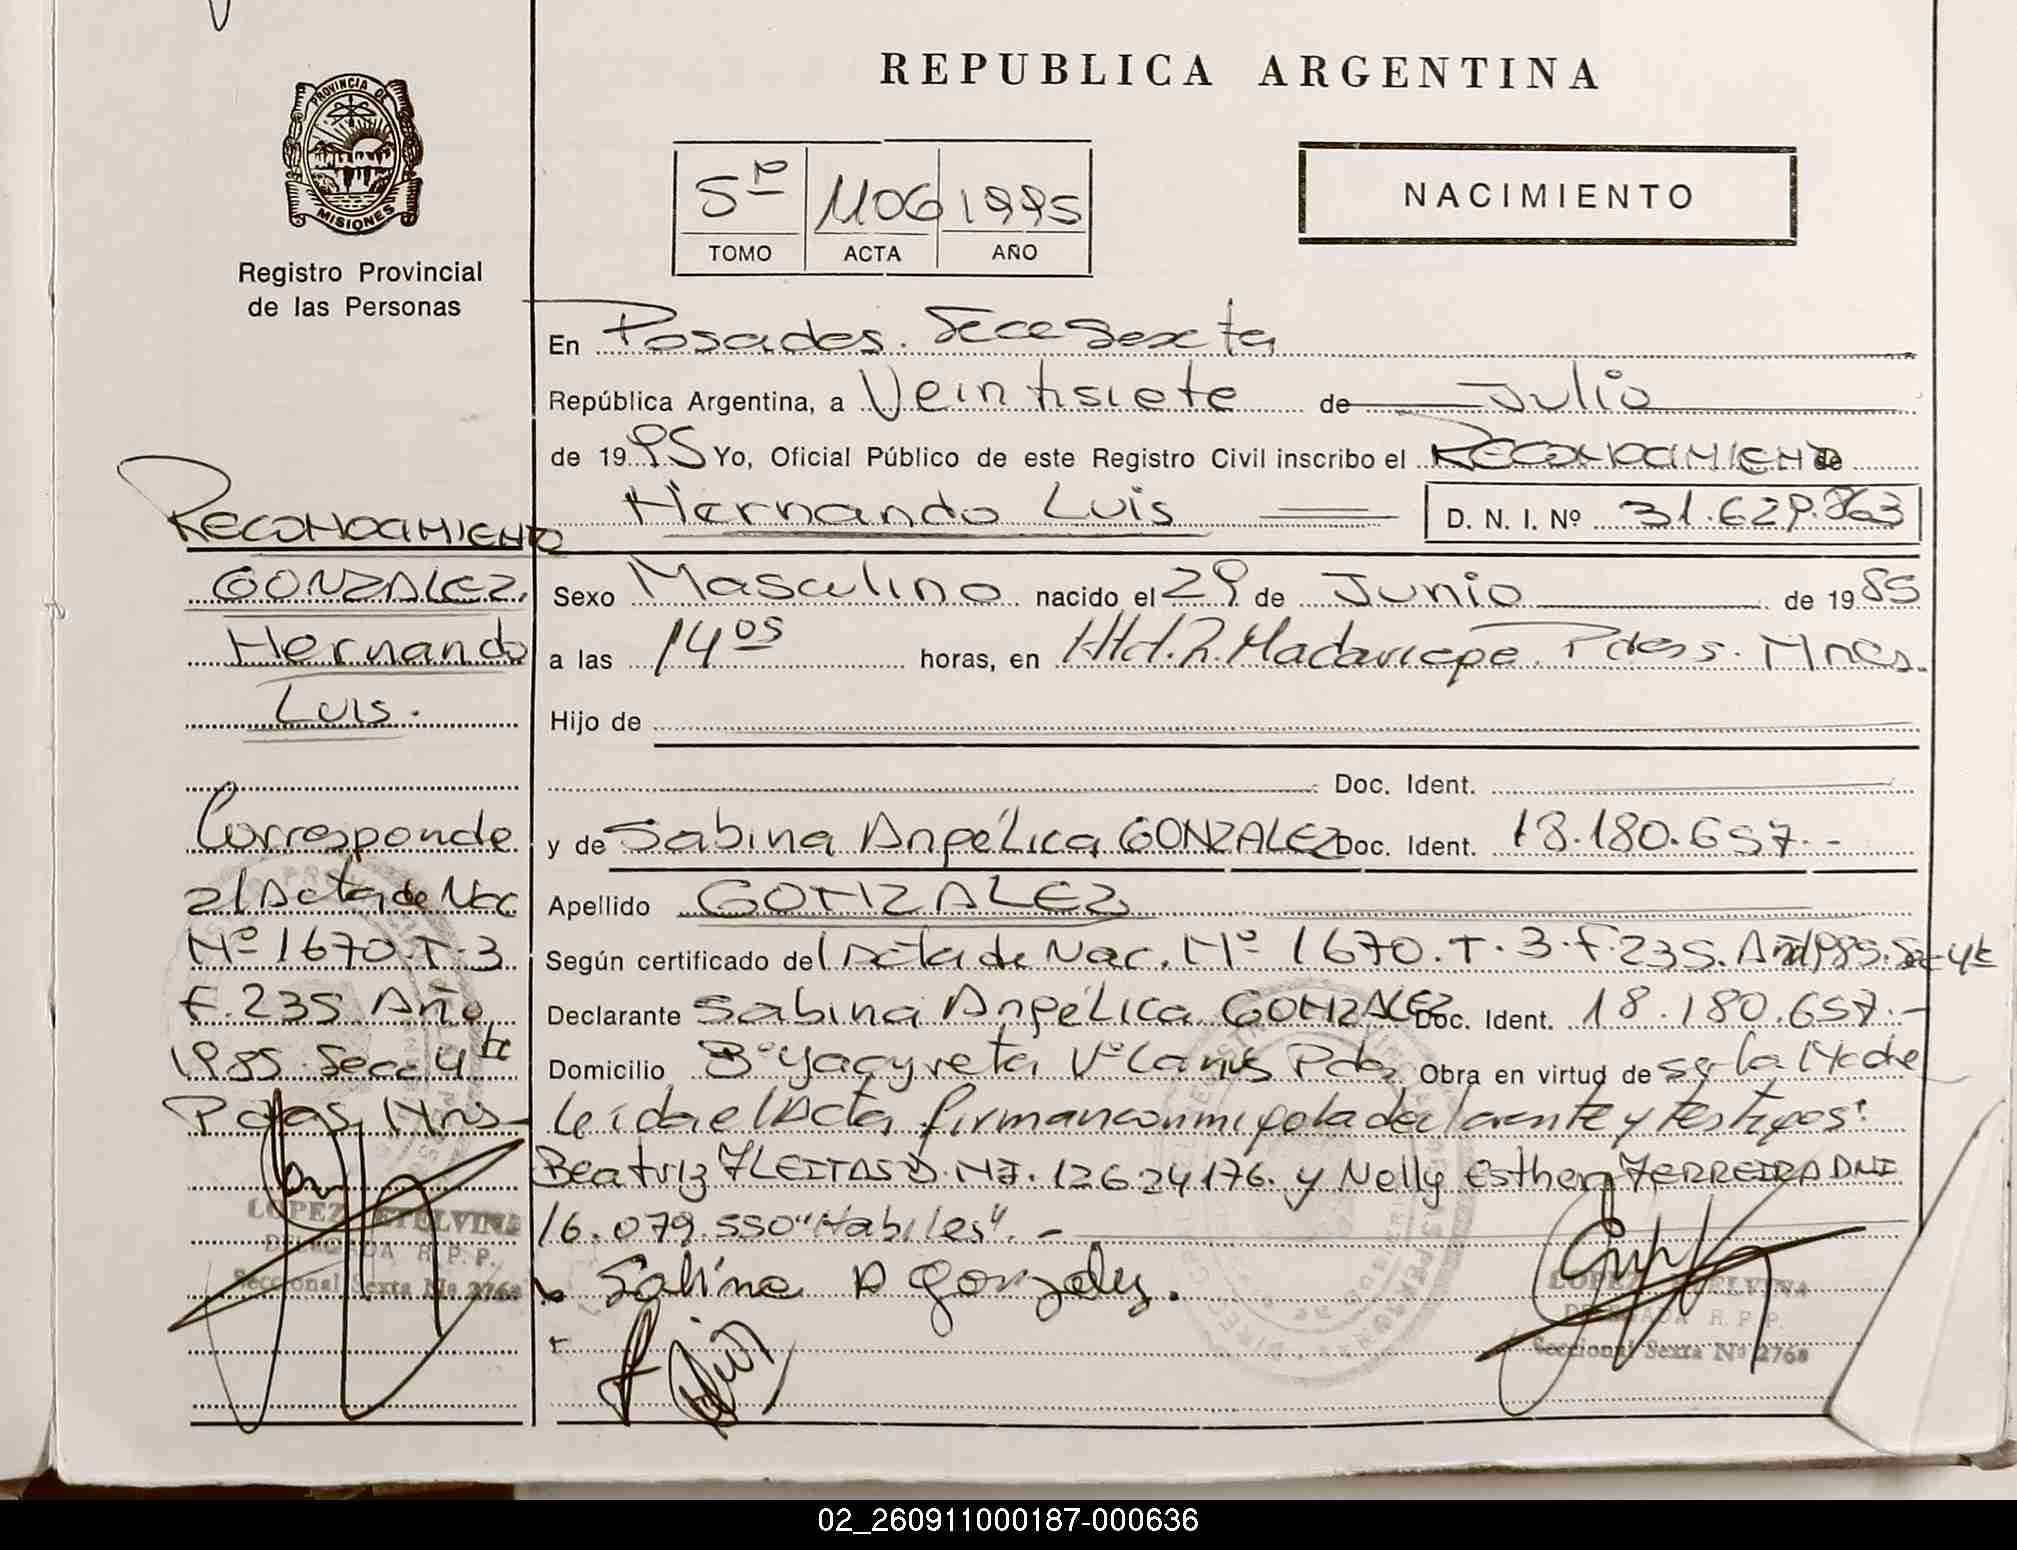 REPUBLICA ARGENTINA
PROVINCIA DE
MISIONES
Registro Provincial
de las Personas
5º 1106 1995
TOMO ACTA AÑO
NACIMIENTO
En Posadas. Secc Sexta
República Argentina, a Veintisiete de Julio
de 1995 Yo, Oficial Público de este Registro Civil inscribo el RECONOCIMIENTO de
Hernando Luis D. N. I. Nº 31.629.863
Sexo Masculino nacido el 29 de Junio de 1985
a las 14 05 horas, en Htal. R. Madariaga. Pdas. Mnes.
Hijo de
Doc. Ident.
y de Sabina Angélica GONZALEZ Doc. Ident. 18.180.657.-
Apellido GONZALEZ
Según certificado del Acta de Nac. Nº 1670. T. 3. F. 235. Año 1985. Sec 4ta
Declarante Sabina Angélica GONZALEZ Doc. Ident. 18.180.657.-
Domicilio Bº Yacyreta Vº Lanús Pdas Obra en virtud de ser la Madre
Leída el Acta firman conmigo la declarante y testigos:
Beatriz FLEITAS D.NI. 12624176. y Nelly Esther FERREIRA DNI
16.079.550 "Habiles". -
Sabina A Gonzalez.
LOPEZ ETELVINA
DELEGADA R. P. P.
Seccional Sexta Nº 2768
RECONOCIMIENTO
GONZALEZ,
Hernando
Luis.
Corresponde
al Acta de Nac
Nº 1670. T. 3
F. 235. Año
1985. Secc 4ta
Pdas, Mns-
LOPEZ ETELVINA
DELEGADA R. P. P.
Seccional Sexta Nº 2768
02_260911000187-000636